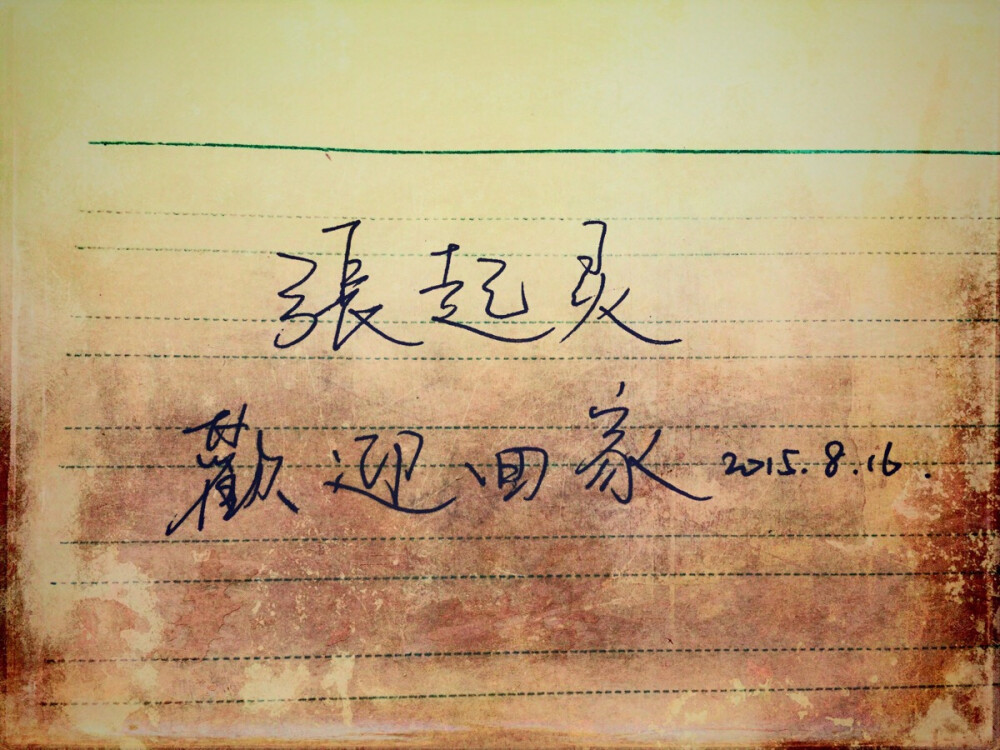 張起灵
歡迎回家 2015.8.16.